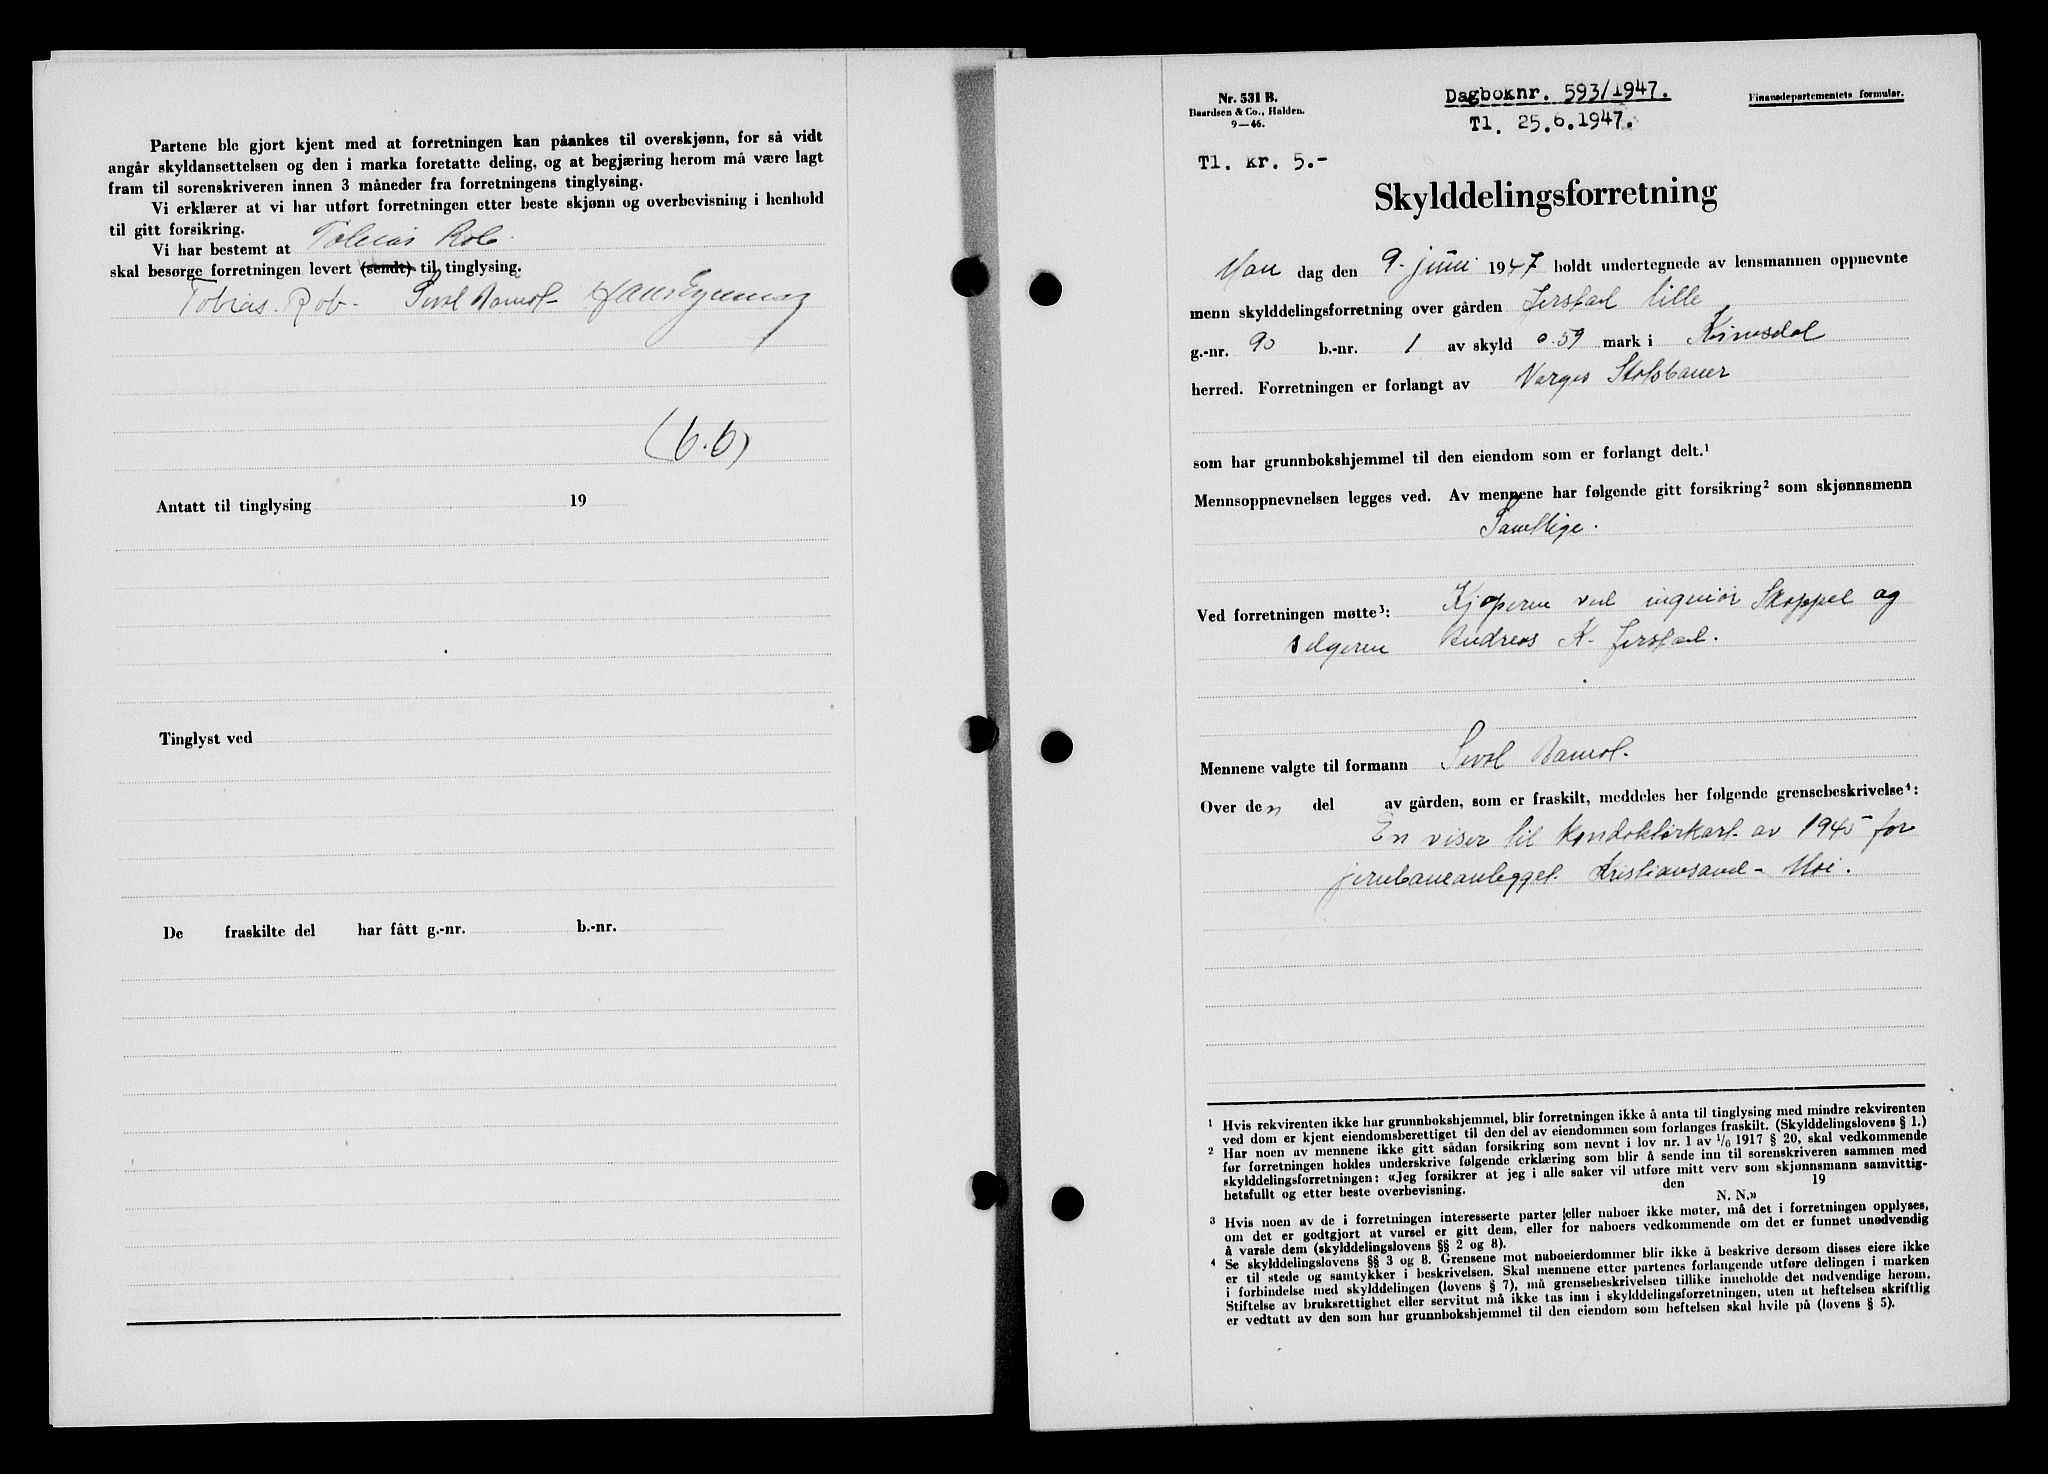 Partene ble gjort kjent med at forretningen kan påankes til overskjønn, for så vidt
angår skyldansettelsen og den i marka foretatte deling, og at begjæring herom må være lagt
fram til sorenskriveren innen 3 måneder fra forretningens tinglysing.
Vi erklærer at vi har utført forretningen etter beste skjønn og overbevisning i henhold
til gitt forsikring.
Vi har bestemt at Tobias Rob.
skal besørge forretningen levert (sendt) til tinglysing.
Tobias. Rob.
(6.6)
Antatt til tinglysing 19
Tinglyst ved
De fraskilte del har fått g.-nr. b.-nr.
Nr. 531 B.
Baardsen & Co., Halden.
9—46.
Dagboknr. 593/1947.
Tl. 25.6.1947.
Finansdepartementets formular.
Tl. kr. 5.-
Skylddelingsforretning
Man dag den 9. juni 1947 holdt undertegnede av lensmannen oppnevnte
menn skylddelingsforretning over gården Jerstad lille
g.-nr. 90 b.-nr. 1 av skyld 0.59 mark i Kvinesdal
herred. Forretningen er forlangt av Norges Statsbaner
som har grunnbokshjemmel til den eiendom som er forlangt delt.¹
Mennsoppnevnelsen legges ved. Av mennene har følgende gitt forsikring² som skjønnsmenn
Samtlige.
Ved forretningen møtte³: Kjøperen ved ingeniør Skoppel og
selgeren Andreas K. Jerstad.
Mennene valgte til formann
Over den del av gården, som er fraskilt, meddeles her følgende grensebeskrivelse⁴:
En viser til konduktørkart av 1945 for
jernbaneanlegget Kristiansand - Moi.
¹ Hvis rekvirenten ikke har grunnbokshjemmel, blir forretningen ikke å anta til tinglysing med mindre rekvirenten
ved dom er kjent eiendomsberettiget til den del av eiendommen som forlanges fraskilt. (Skylddelingslovens § 1.)
² Har noen av mennene ikke gitt sådan forsikring som nevnt i lov nr. 1 av 1/6 1917 § 20, skal vedkommende
før forretningen holdes underskrive følgende erklæring som blir å sende inn til sorenskriveren sammen med
skylddelingsforretningen: «Jeg forsikrer at jeg i alle saker vil utføre mitt verv som skjønnsmann samvittig-
hetsfullt og etter beste overbevisning. den 19
N. N.»
³ Hvis noen av de i forretningen interesserte parter eller naboer ikke møter, må det i forretningen opplyses,
om det er godtgjort at varsel er gitt dem, eller for naboers vedkommende om det er funnet unødvendig
å varsle dem (skylddelingslovens §§ 2 og 8).
⁴ Se skylddelingslovens §§ 3 og 8. Grensene mot naboeierdommer blir ikke å beskrive dersom disses eiere ikke
er til stede og samtykker i beskrivelsen. Skal mennene etter partenes forlangende utføre delingen i marken
i forbindelse med skylddelingen (lovens § 7), må grensebeskrivelsen tillike inneholde det nødvendige herom.
Stiftelse av bruksrettighet eller servitut må ikke tas inn i skylddelingsforretningen, uten at heftelsen skriftlig
er vedtatt av den som har grunnbokshjemmel til den eiendom som heftelsen skal hvile på (lovens § 5).